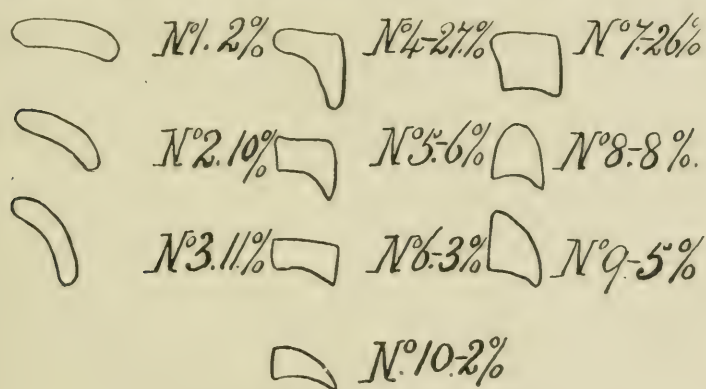 Nº1.2% Nº4-27.% Nº7-26%
Nº2.10% Nº5.-6% Nº8.-8%.
Nº3.11.% Nº6.-3% Nº9.-5%
Nº.10.-2%